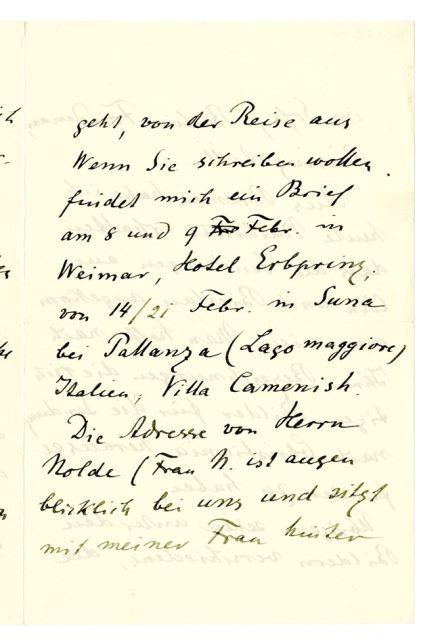 geht, von der Reise aus
Wenn Sie schreiben wollen
findet mich ein Brief
am 8 und 9 Febr. in
Weimar, Hotel Erbprinz,
von 14/21 Febr. in Suna
bei Pallanza (Lago maggiore)
Italien, Villa Camenish.
Die Adresse von Herrn
Nolde (Frau N. ist augen
blicklich bei uns und sitzt
mit meiner Frau hinter